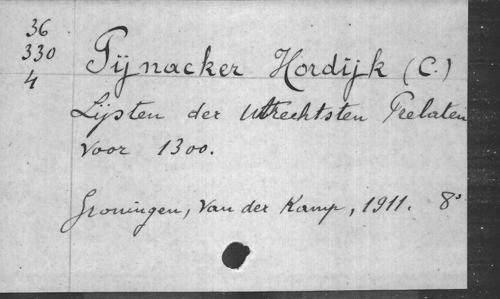 36
330
4
Pijnacker Hordijk (C.)
Lijsten der Utrechtsten Prelaten
voor 1300.
Groningen, van der Kamp, 1911. 8°